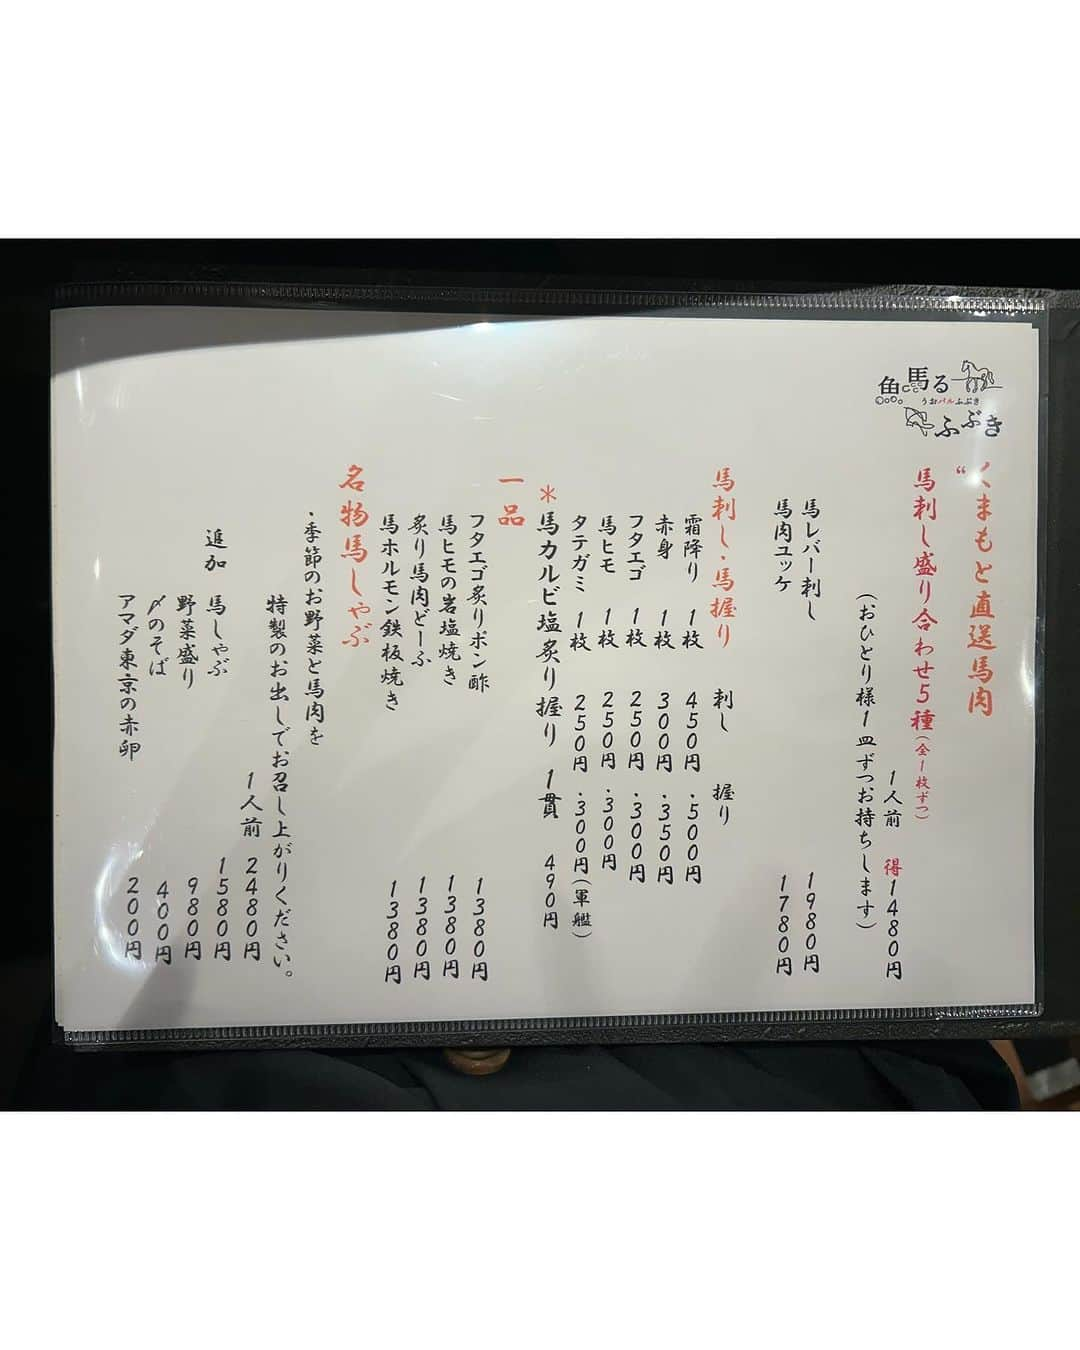 魚馬る
うおバルふぶき
ふぶき
“くまもと直送馬肉
馬刺し盛り合わせ5種(全1枚ずつ)
1人前 得1480円
(おひとり様1皿ずつお持ちします)
馬レバー刺し 1980円
馬肉ユッケ 1780円
馬刺し・馬握り 刺し 握り
霜降り 1枚 450円・500円
赤身 1枚 300円・350円
フタエゴ 1枚 250円・300円
馬ヒモ 1枚 250円・300円
タテガミ 1枚 250円・300円(軍艦)
＊馬カルビ塩炙り握り 1貫 490円
一品
フタエゴ炙りポン酢 1380円
馬ヒモの岩塩焼き 1380円
炙り馬肉どーふ 1380円
馬ホルモン鉄板焼き 1380円
名物馬しゃぶ
・季節のお野菜と馬肉を
特製のお出しでお召し上がりください。
1人前 2480円
追加 馬しゃぶ 1580円
野菜盛り 980円
〆のそば 400円
アマダ東京の赤卵 200円